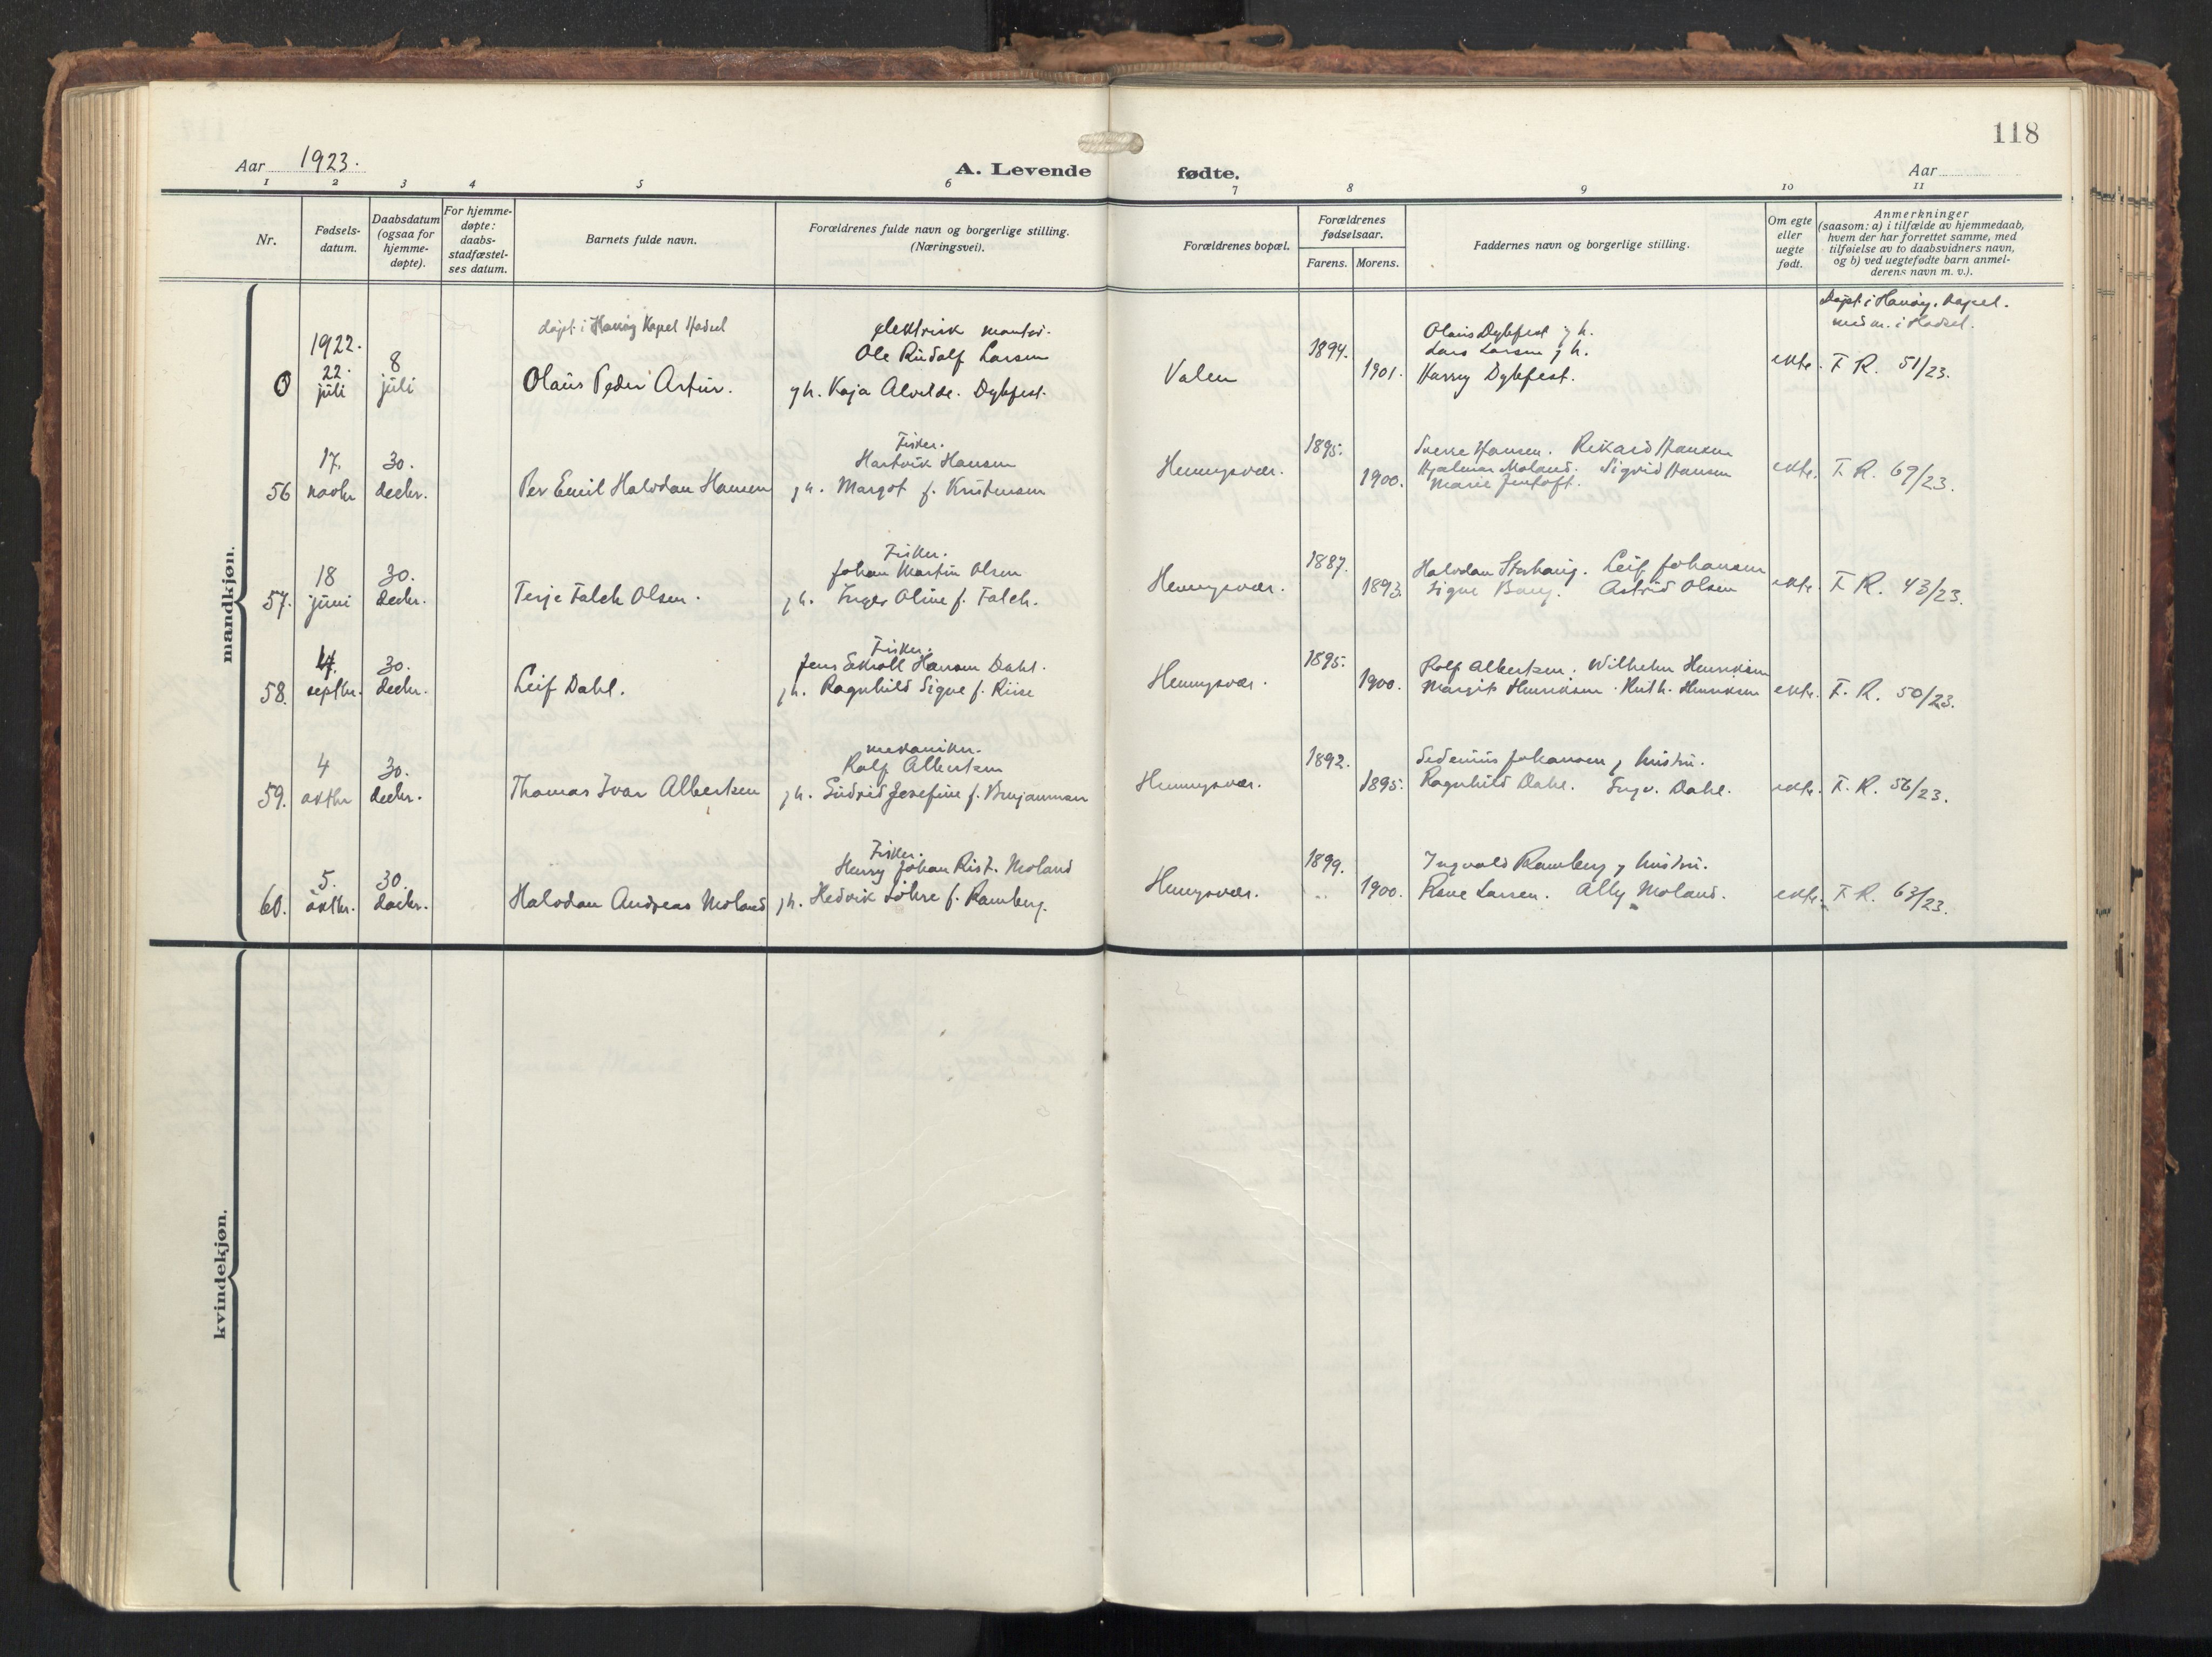 118
Aar 1923.
A. Levende fødte.
Aar
1 2 3 4 5 6 7 8 9 10 11
Nr.
Fødsels-
datum.
Daabsdatum
(ogsaa for
hjemme-
døpte).
For hjemme-
døpte:
daabs-
stadfæstel-
ses datum.
Barnets fulde navn.
Forældrenes fulde navn og borgerlige stilling.
(Næringsvei).
Forældrenes bopæl.
Forældrenes
fødselsaar.
Farens. Morens.
Faddernes navn og borgerlige stilling.
Om egte
eller
uegte
født.
Anmerkninger
(saasom: a) i tilfælde av hjemmedaab,
hvem der har forrettet samme, med
tilføielse av to daabsvidners navn,
og b) ved uegtefødte barn anmel-
derens navn m. v.).
mandkjøn.
0
1922.
22.
juli
8
juli
døpt i Kapel Hadsel
Olaus Peder Artur.
elektrisk montør.
Ole Rudolf Larsen
g h. Kaja Alvilde. Dybfest.
Valen
1894.
1901.
Olaus Dybfest g h.
Lars Larsen g h.
Harry Dybfest.
ekte.
Døpt i Kapel.
i Hadsel.
F R. 51/23.
56
17.
novbr
30.
decbr.
Per Emil Halvdan Hansen
Fisker.
Hartvik Hansen
g h. Margot f. Kristensen
Henningsvær.
1895.
1900.
Sverre Hansen. Rikard Hansen
Hjalmar Moland. Sigrid Hansen
Marie Jentoft.
ekte.
F. R. 69/23.
57.
18
juni
30.
decbr.
Terje Falch Olsen.
Fisker.
Johan Martin Olsen
g h. Inger Oline f. Falch.
Henningsvær.
1887.
1893.
Halvdan Storhaug. Leif Johansen
Signe Bang. Astrid Olsen
ekte.
F R. 43/23.
58.
septbr.
30.
decbr.
Leif Dahl.
Fisker.
Jens Hansen Dahl.
g h. Ragnhild Signe f. Riise
Henningsvær.
1895.
1900.
Rolf Albertsen. Wilhelm Henriksen
Margit Henriksen. Ruth. Henriksen
ekte.
F. R. 50/23.
59.
4
oktbr
30.
decbr.
Thomas Ivar Albertsen
mekaniker.
Rolf Albertsen
g h. Gudrid Josefine f. Benjaminsen
Henningsvær.
1892.
1895.
Sedenius Johansen g hustru.
Ragnhild Dahl. Ingv. Dahl.
ekte.
F. R. 56/23.
60.
5.
oktbr.
30.
decbr.
Halvdan Andreas Moland
Fisker.
Henry Johan Rist. Moland
g h. Hedvik Løhre f. Ramberg.
Henningsvær.
1899.
1900.
Ingvald Ramberg g hustru.
Rene Larsen. Ally Moland.
ekte.
F R. 63/23.
kvindekjøn.